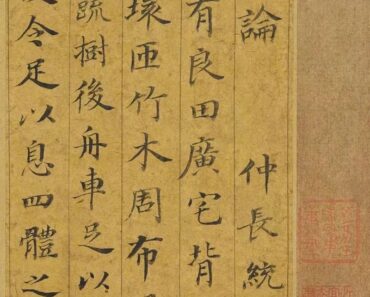 論 仲長統
有良田廣宅背
環匝竹木周布
蔬樹後舟車足以
令足以息四體之